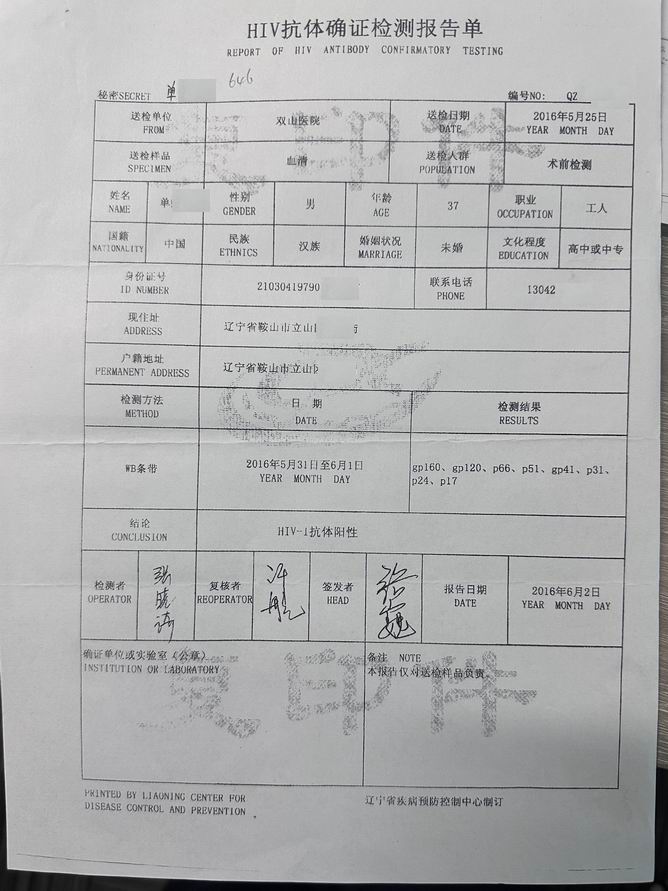 HIV抗体确证检测报告单
REPORT OF HIV ANTIBODY CONFIRMATORY TESTING
秘密SECRET 单 646 编号NO: QZ
送检单位 FROM 双山医院 送检日期 DATE 2016年5月25日 YEAR MONTH DAY
送检样品 SPECIMEN 血清 送检人群 POPULATION 术前检测
姓名 NAME 单 性别 GENDER 男 年龄 AGE 37 职业 OCCUPATION 工人
国籍 NATIONALITY 中国 民族 ETHNICS 汉族 婚姻状况 MARRIAGE 未婚 文化程度 EDUCATION 高中或中专
身份证号 ID NUMBER 21030419790 联系电话 PHONE 13042
现住址 ADDRESS 辽宁省鞍山市立山
户籍地址 PERMANENT ADDRESS 辽宁省鞍山市立山
检测方法 METHOD 日期 DATE 检测结果 RESULTS
WB条带 2016年5月31日至6月1日 YEAR MONTH DAY gp160、gp120、p66、p51、gp41、p31、
p24、p17
结论 CONCLUSION HIV-1抗体阳性
检测者 OPERATOR 复核者 REOPERATOR 签发者 HEAD 报告日期 DATE 2016年6月2日 YEAR MONTH DAY
确证单位或实验室（公章） 备注 NOTE
INSTITUTION OR LABORATORY 本报告仅对送检样品负责
复印件
复印件
PRINTED BY LIAONING CENTER FOR 辽宁省疾病预防控制中心制订
DISEASE CONTROL AND PREVENTION